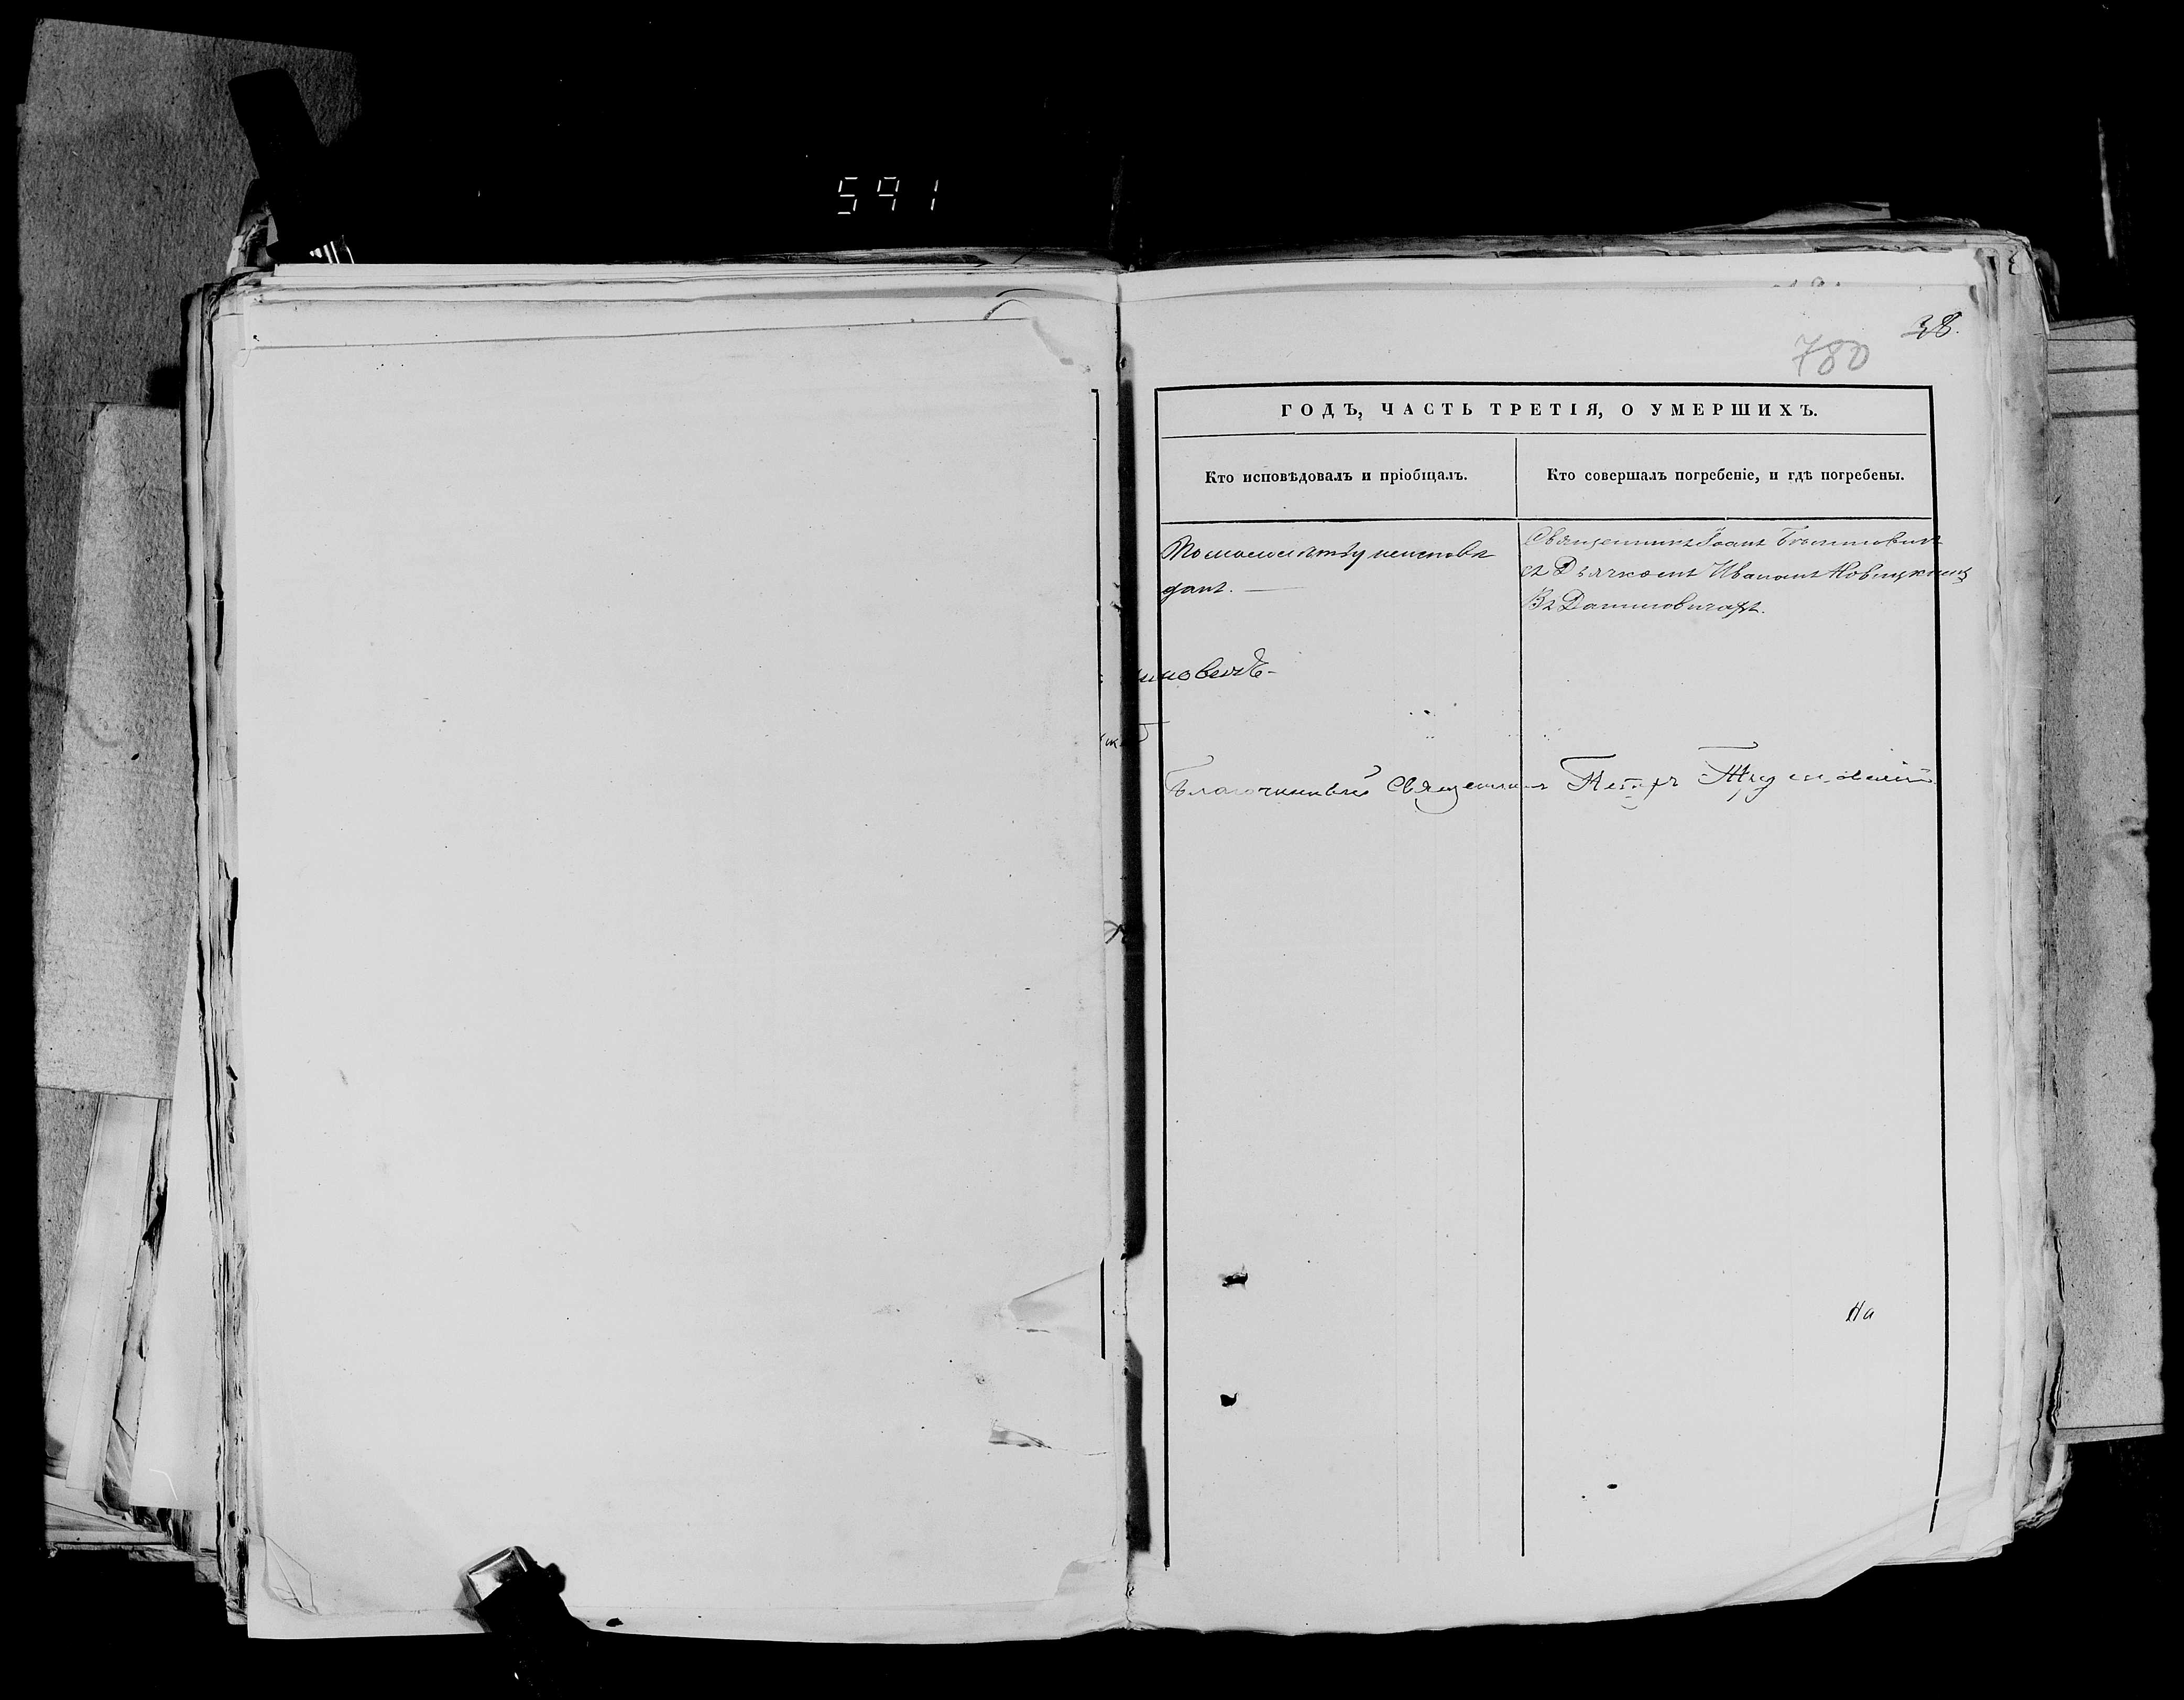 591
38.
780
ГОДЪ, ЧАСТЬ ТРЕТІЯ, О УМЕРШИХЪ.
Кто исповѣдовалъ и пріобщалъ.
Кто совершалъ погребеніе, и гдѣ погребены.
По малолѣтству неисповѣ
данъ.
Священникъ Іоанъ
съ Дьячкомъ Иваномъ Новицкимъ
Въ Даниловичахъ.
Благочинный Священникъ Петръ
На